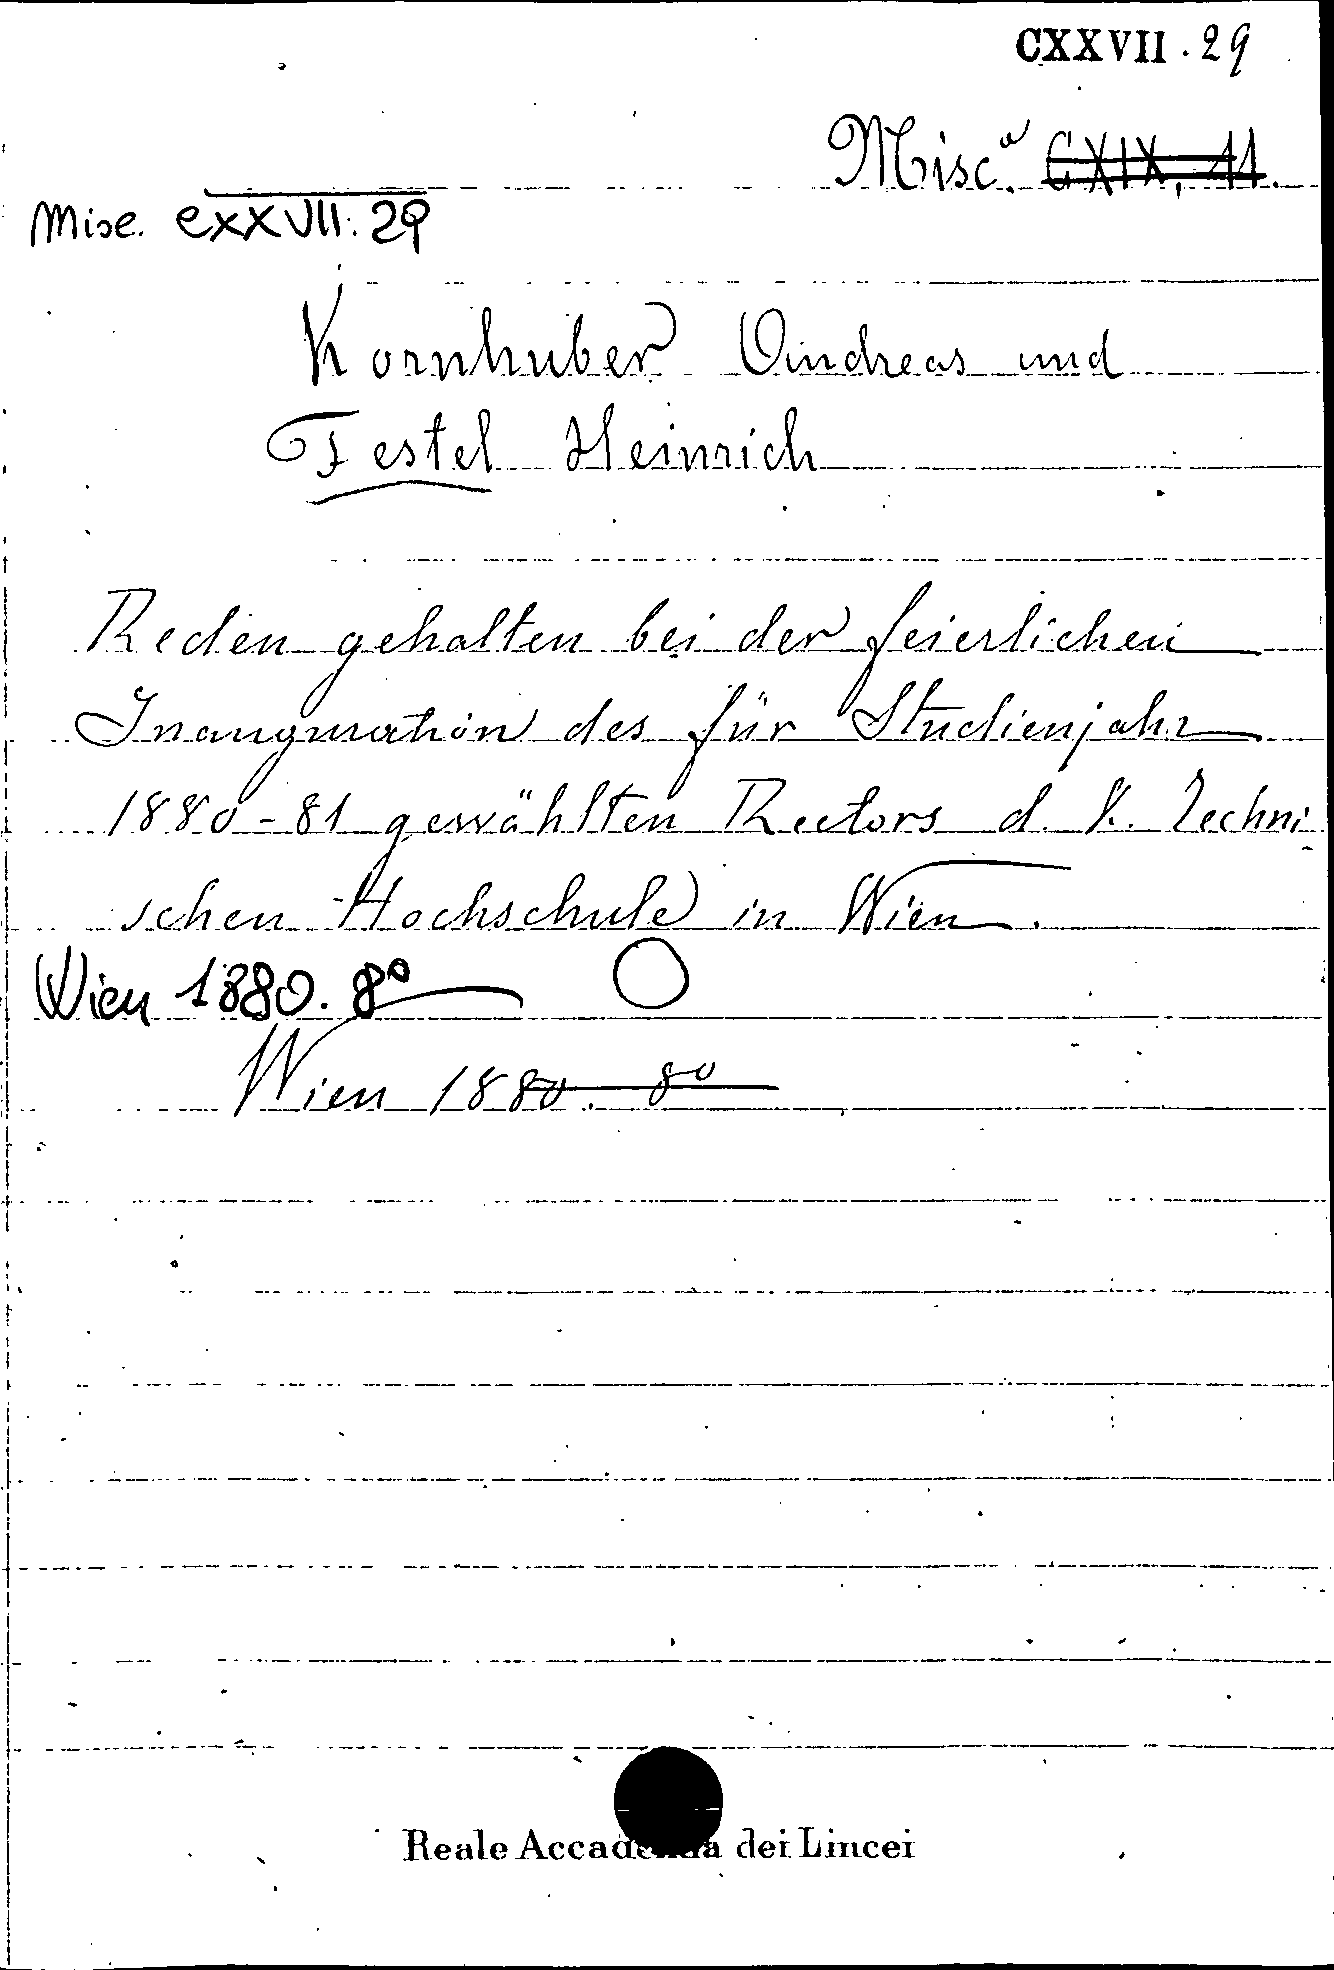 CXXVII . 29
Misc.ª CXIX, 11.
Misc. CXXVII. 29
Kornhuber Andreas und
Festel Heinrich
Reden gehalten bei der feierlichen
Inauguration des für Studienjahr
1880-81 gewählten Rectors d. k. Techni
schen Hochschule in Wien.
Wien 1880. 8º
Wien 1880. 8º
Reale Accademia dei Lincei